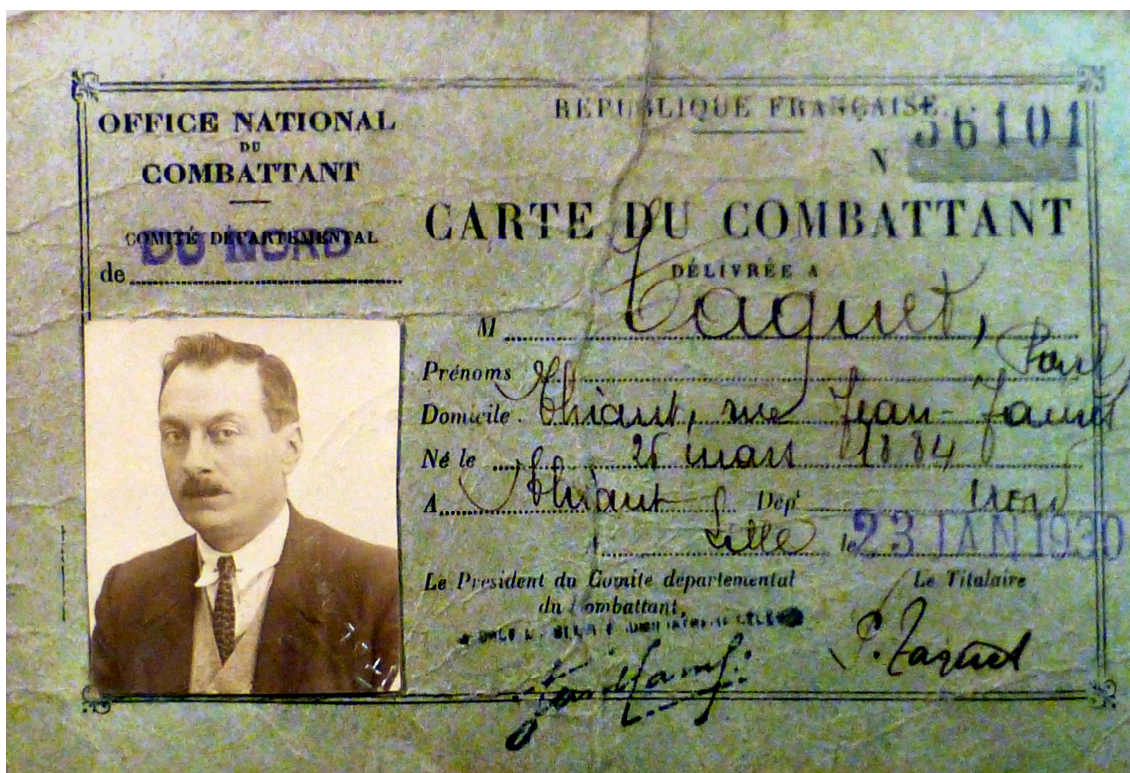 OFFICE NATIONAL
DU
COMBATTANT
COMITÉ DÉPARTEMENTAL
de DU NORD
RÉPUBLIQUE FRANÇAISE
N 36101
CARTE DU COMBATTANT
DÉLIVRÉE A
M Taquet,
Prénoms Paul
Domicile Thiant, rue Jean-Jaurès
Né le mars 1884
A Thiant Dépt Nord
A Lille le 23 JAN 1930
Le Président du Comité départemental
du Combattant,
Le Titulaire
P. Taquet